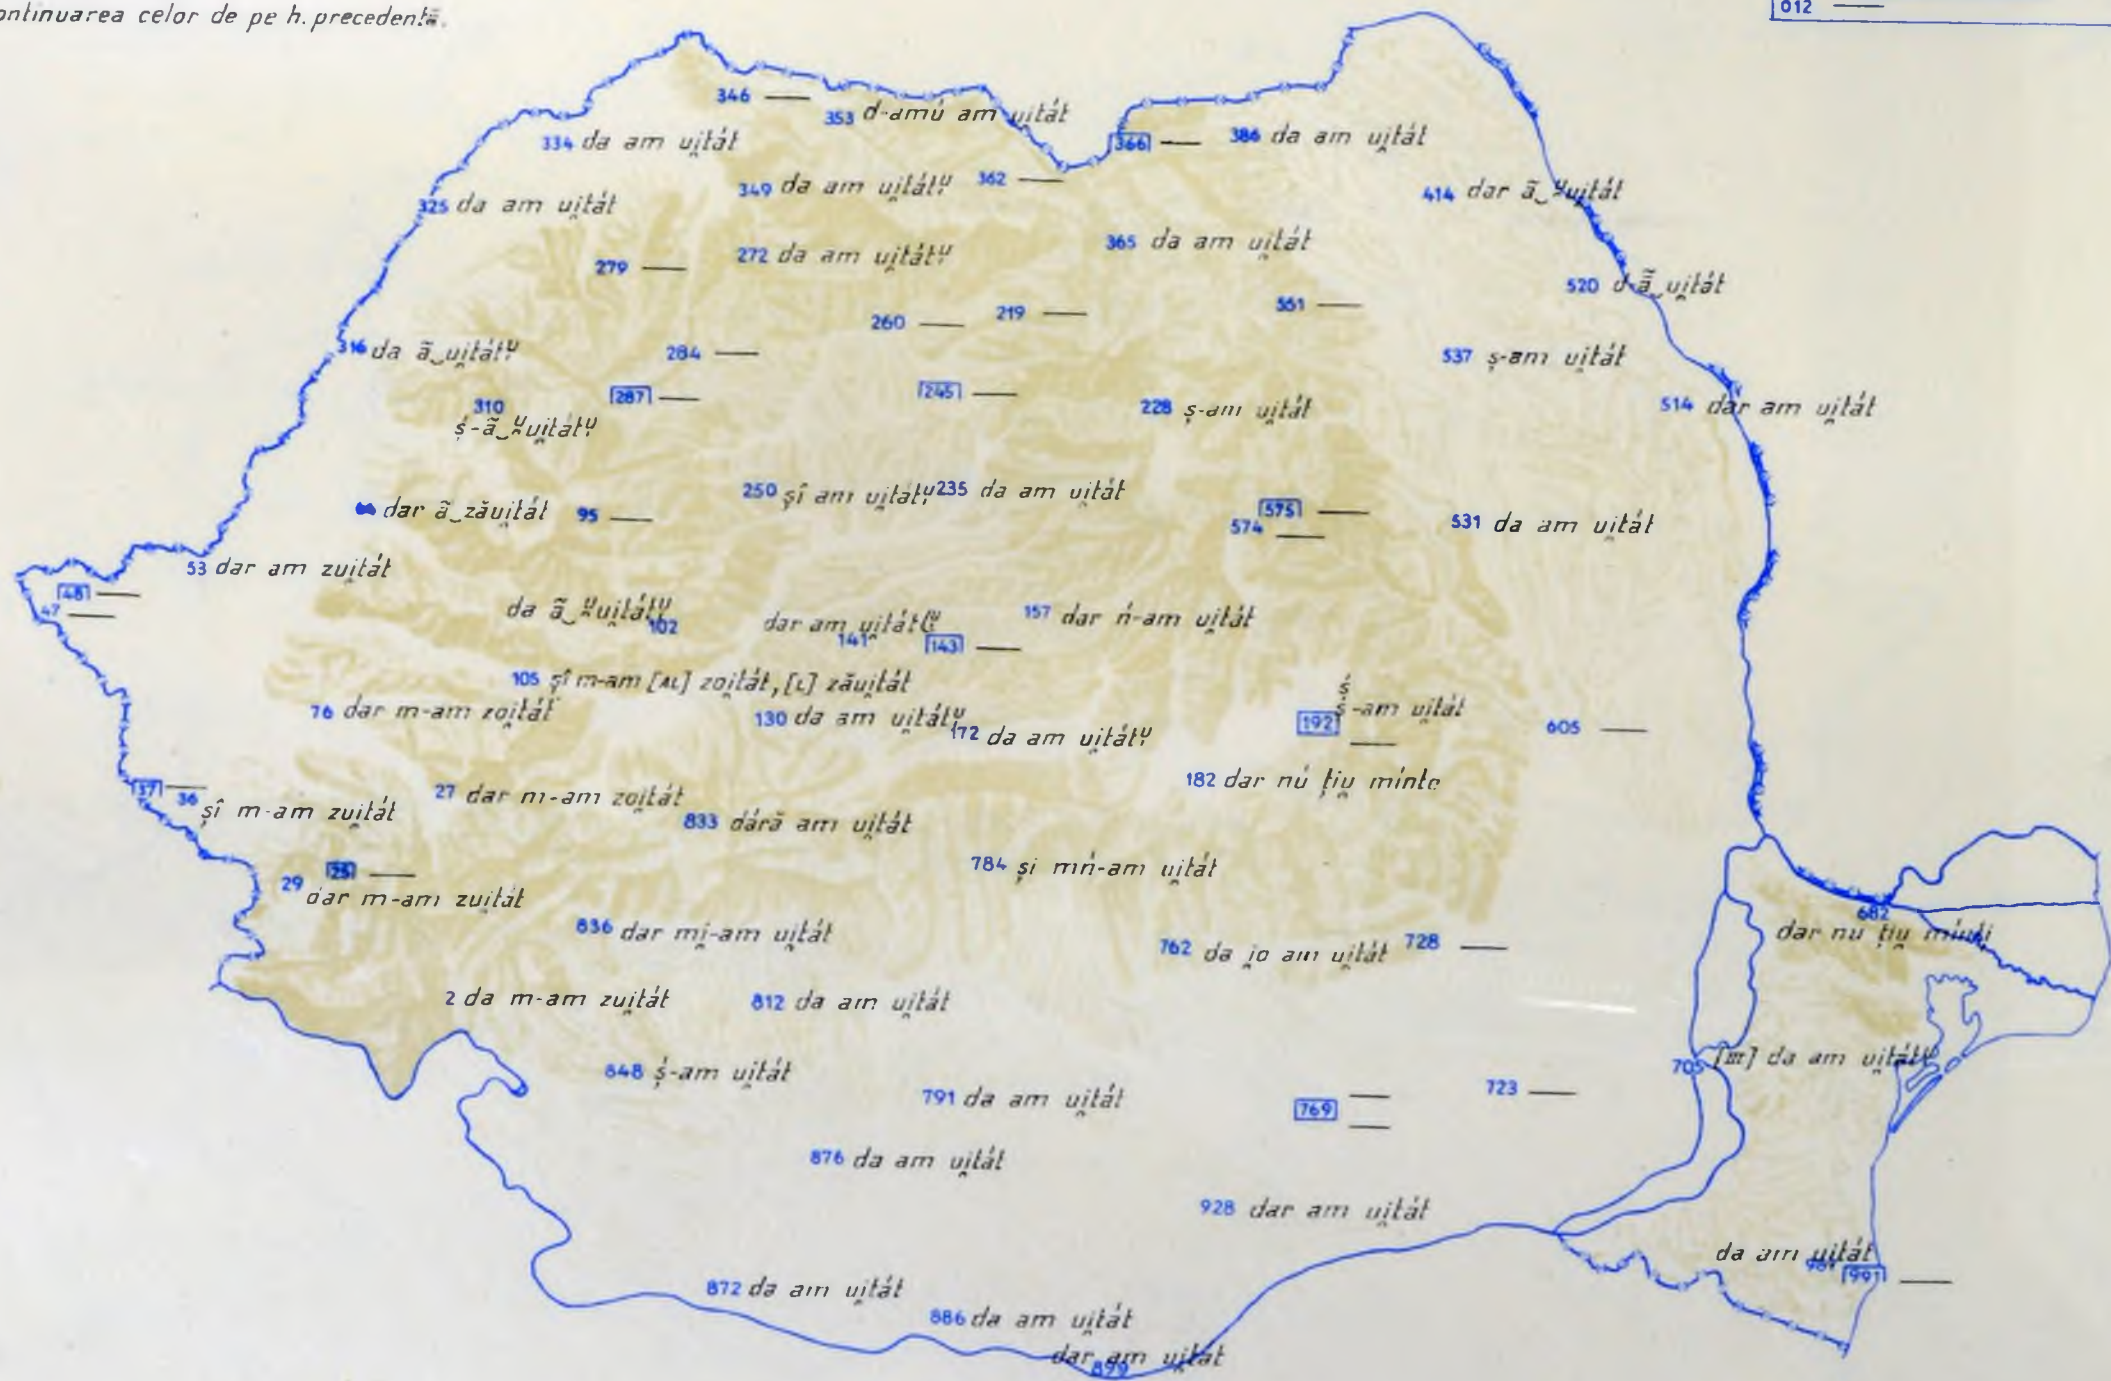 ontinuarea celor de pe h. precedentă.
012 —
346 —
353 d-amú am u̯itát
334 da am u̯itát
366 —
386 da am u̯itát
349 da am u̯itátᵘ̯
362 —
325 da am u̯itát
414 dar ã‿ᵘ̯u̯itát
272 da am u̯itátᵘ̯
365 da am u̯itát
279 —
520 d-ã‿u̯itát
551 —
260 —
219 —
316 da ã‿u̯itátᵘ̯
284 —
537 ș-am u̯itát
287 —
245 —
310 ś-ã‿ᵘ̯u̯itátᵘ̯
228 ș-am u̯itát
514 dar am u̯itát
250 șî am u̯itátᵘ̯
235 da am u̯itát
dar ã‿zăuitát
95 —
575 —
574 —
531 da am u̯itát
53 dar am zuitát
48 —
47 —
102 da ã‿ᵘ̯u̯itátᵘ̯
141 dar am u̯itát(ᵘ̯)
143 —
157 dar ń-am u̯itát
105 șî m-am [AL] zoi̯tát, [L] zăuitát
76 dar m-am zoi̯tát
130 da am u̯itátᵘ̯
172 da am u̯itátᵘ̯
192 -am u̯itát
—
605 —
182 dar nú țiu̯ mínte
37 —
36 șî m-am zuitát
27 dar m-am zoi̯tát
833 dáră am u̯itát
784 și mń-am u̯itát
29 dar m-am zuitát
—
836 dar mi̯-am u̯itát
762 da i̯o am u̯itát
728 —
682 dar nu țiu̯
2 da m-am zuitát
812 da am u̯itát
705 [III] da am u̯itátᵘ̯
848 ś-am u̯itát
791 da am u̯itát
769 —
—
723 —
876 da am u̯itát
928 dar am u̯itát
da am u̯itát
991 —
872 da am u̯itát
886 da am u̯itát
899 dar am u̯itat